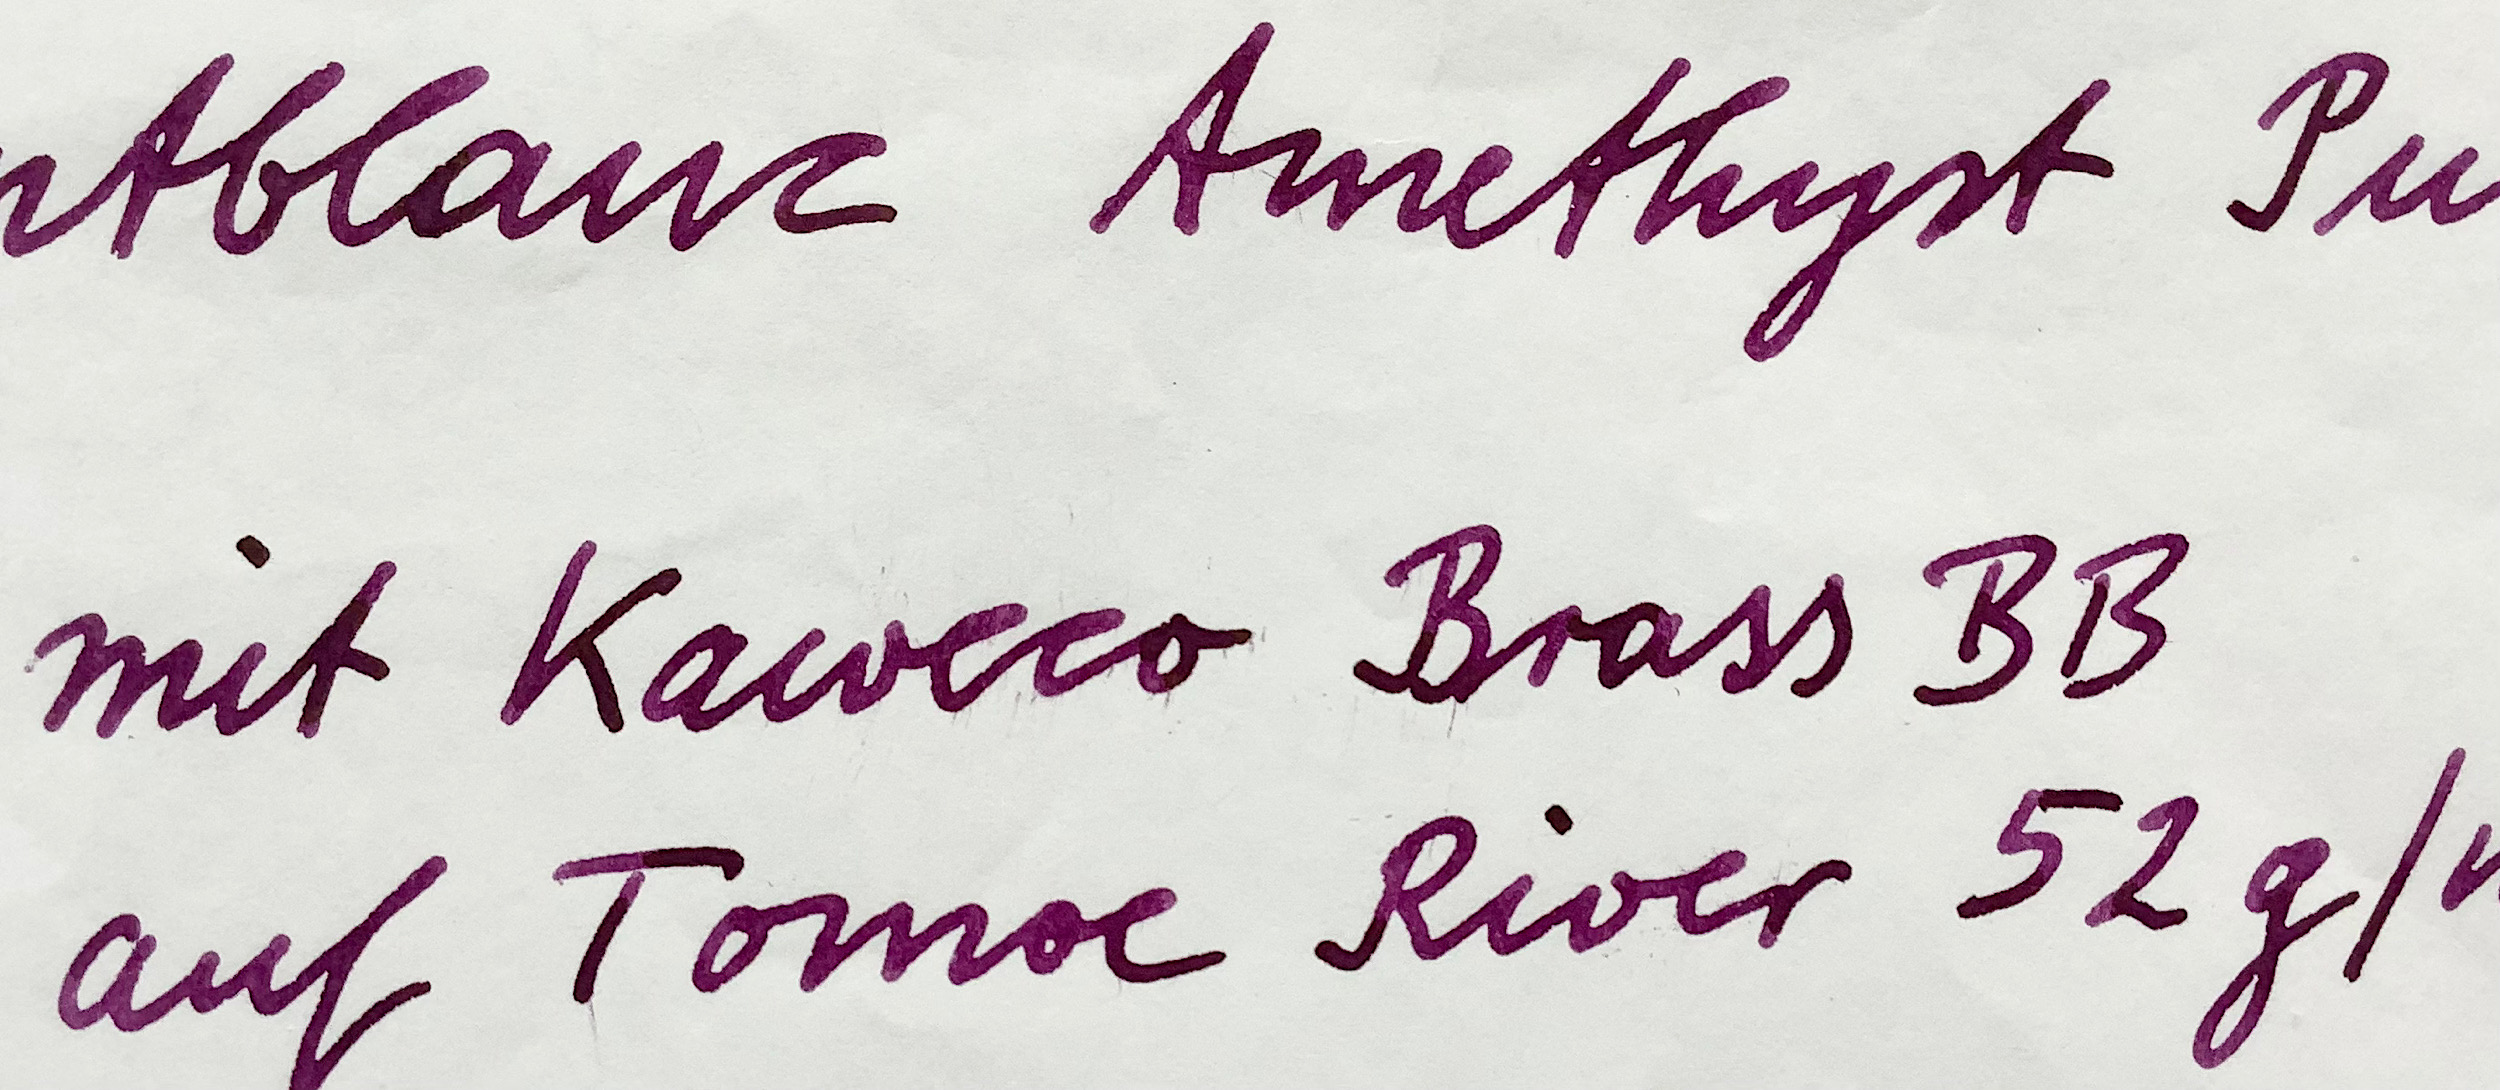 ntblanc Amethyst Pu
mit Kaweco Brass BB
auf Tomoe River 52 g/m